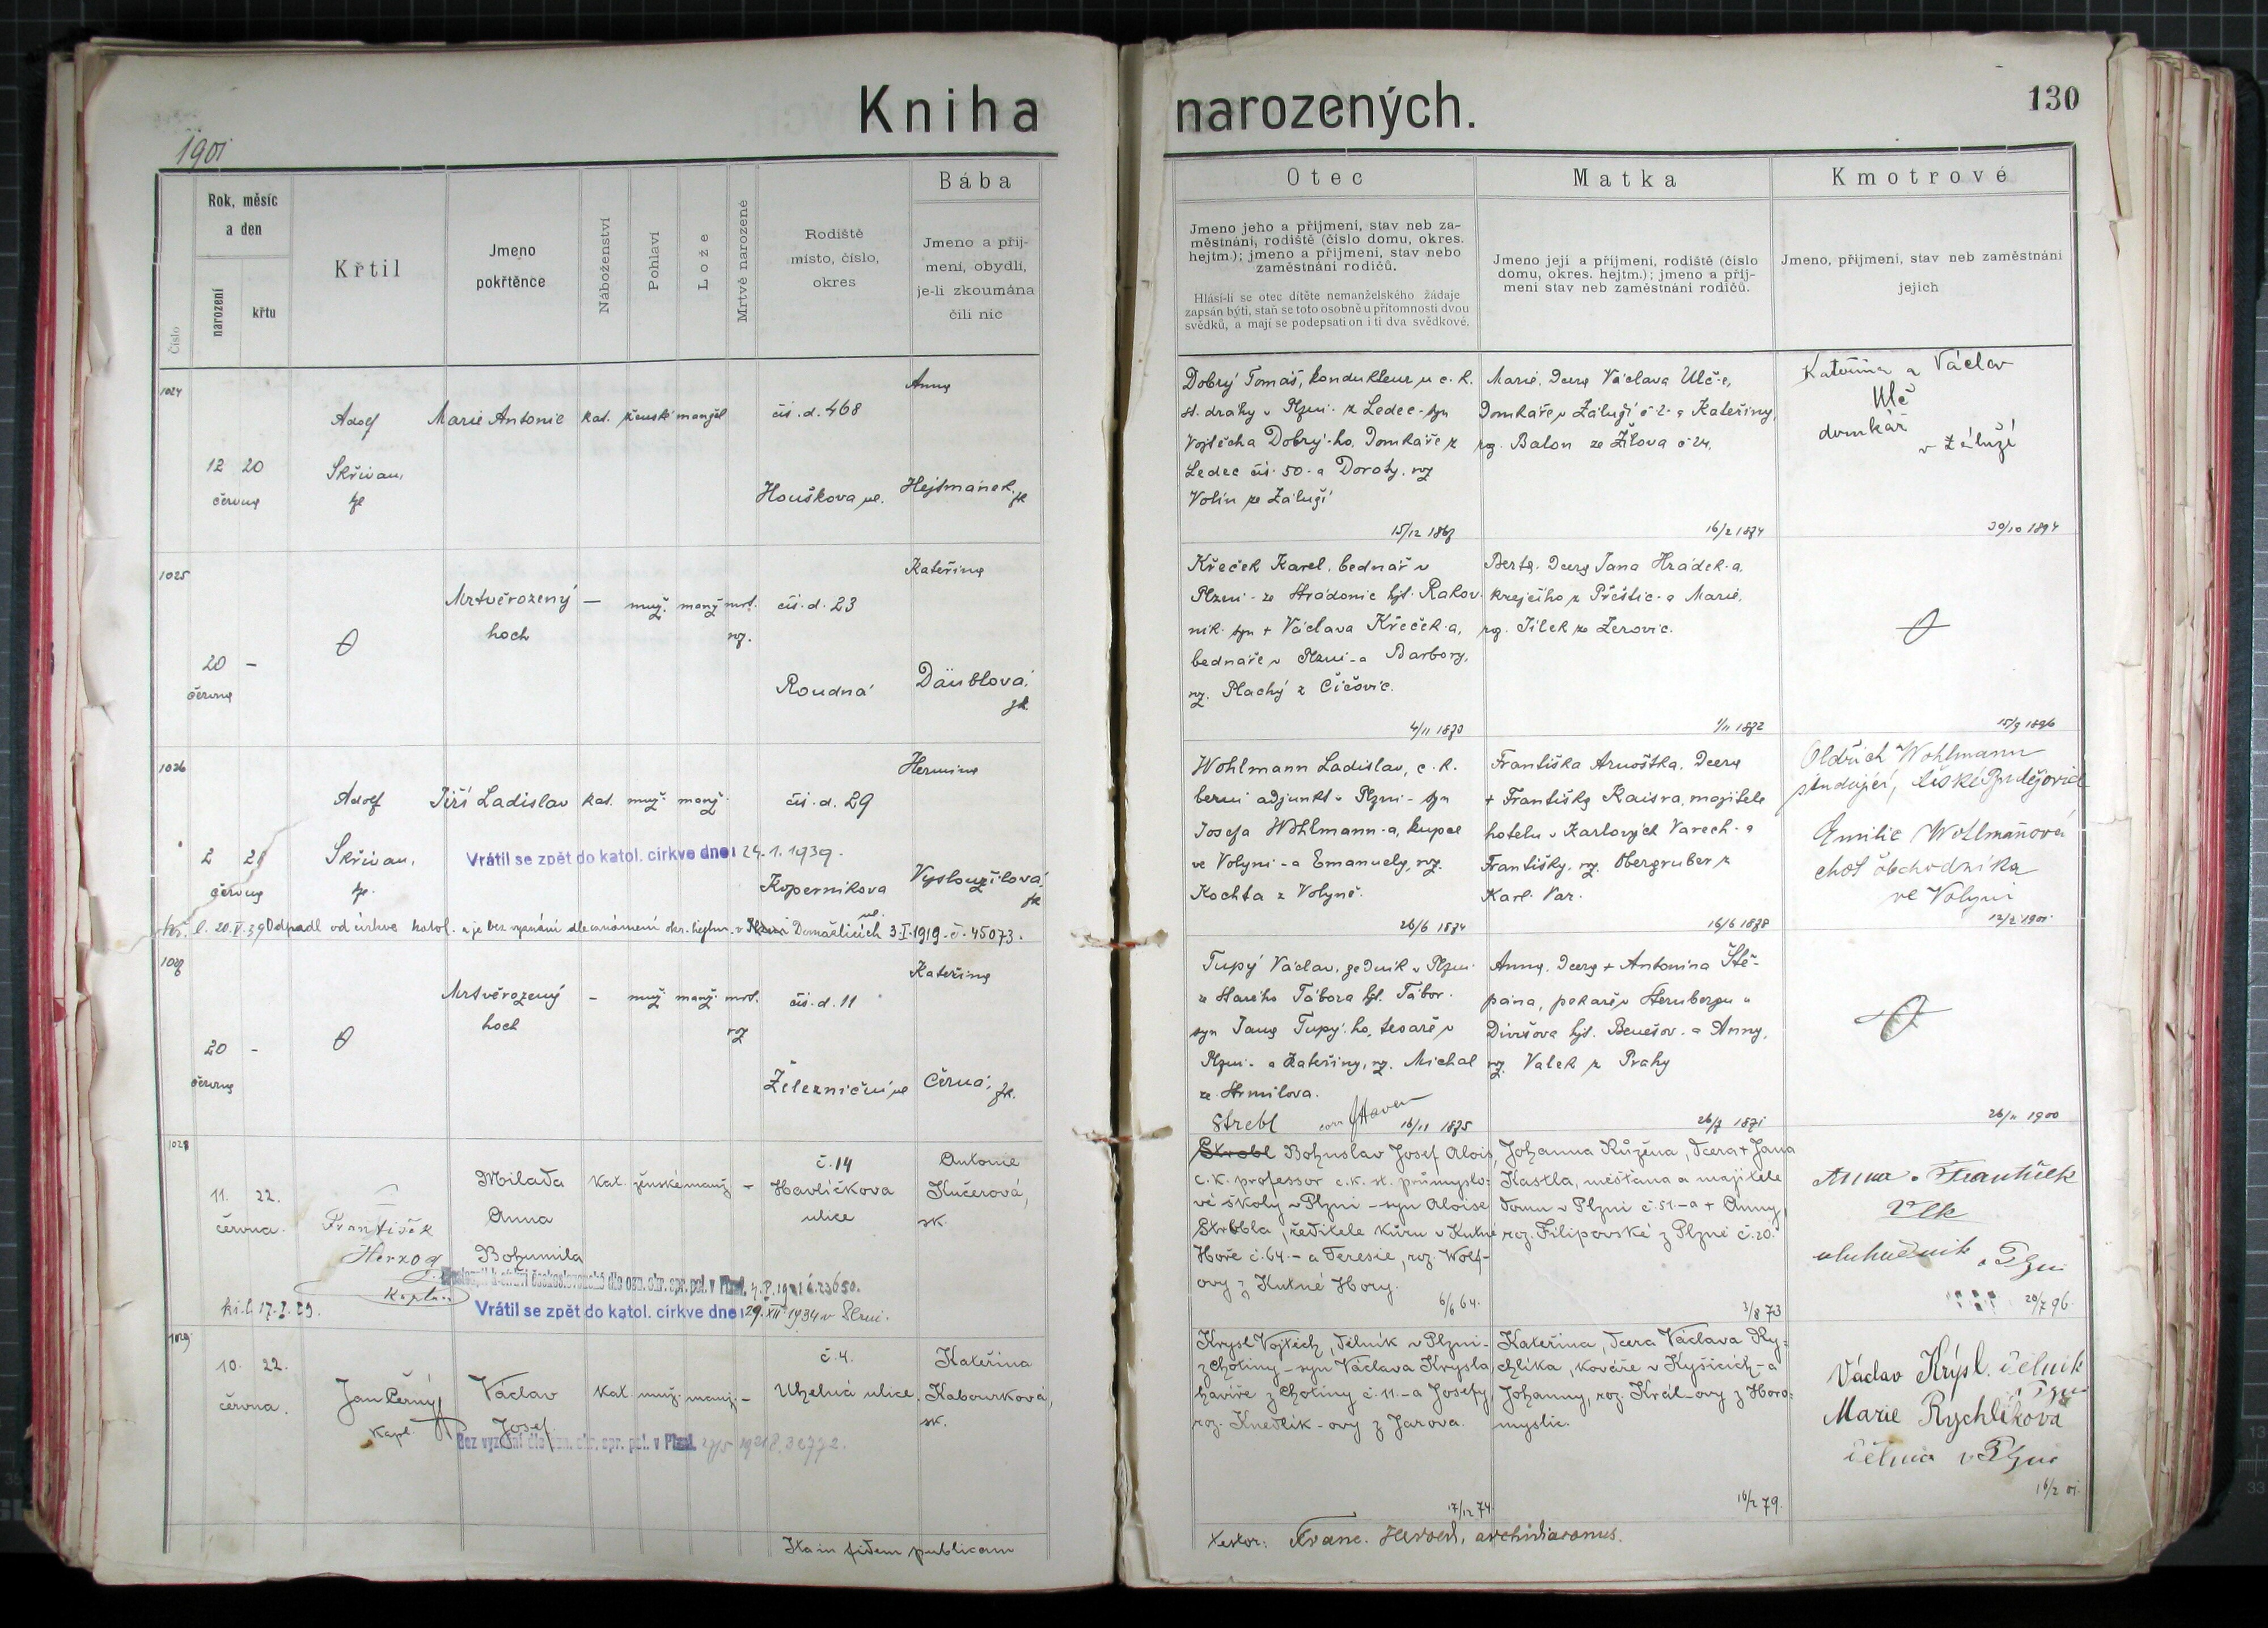 Kniha narozených.
130
1901
Číslo
Rok, měsíc
a den
narození
křtu
Křtil
Jmeno
pokřtěnce
Náboženství
Pohlaví
Lože
Mrtvě narozené
Rodiště
místo, číslo,
okres
Bába
Jmeno a příj-
mení, obydlí,
je-li zkoumána
čili nic
Otec
Jmeno jeho a příjmení, stav neb za-
městnání, rodiště (číslo domu, okres.
hejtm.); jmeno a příjmení, stav nebo
zaměstnání rodičů.
Hlásí-li se otec dítěte nemanželského žádaje
zapsán býti, staň se toto osobně u přítomnosti dvou
svědků, a mají se podepsati on i ti dva svědkové.
Matka
Jmeno její a příjmení, rodiště (číslo
domu, okres. hejtm.); jmeno a příj-
mení stav neb zaměstnání rodičů.
Kmotrové
Jmeno, příjmení, stav neb zaměstnání
jejich
1024
12 20
června
Adolf
Skřivan,
Marie Antonie
kat.
ženské
manžel
čís. d. 468
Houškova ul.
Anna
Hejtmánek,
Dobrý Tomáš, kondukteur u c. k.
st. dráhy v Plzni - z Ledec - syn
Vojtěcha Dobrý-ho, domkáře z
Ledec čís. 50 - a Doroty, roz
Volín ze Záluží
15/12 1867
Marie, dcera Václava Ulč-e,
domkáře v Záluží č 2 - a Kateřiny,
roz. Balon ze Žilova č 24.
16/2 1874
Kateřina a Václav
Ulč
domkář
v Záluží
30/10 1894
1025
20 -
června
Mrtvěrozený
hoch
-
muž.
manž
mrt.
roz.
čís. d. 23
Roudná
Kateřina
Däublová,
Křeček Karel, bednář v
Plzni - ze Hradonic hjt. Rakov-
ník - syn + Václava Křeček-a,
bednáře v Plzni - a Barbory,
roz. Plachý z Číčovic.
4/11 1870
Berta, dcera Jana Hrádek-a,
krejčího z Přeštic - a Marie,
roz. Jílek ze Žerovic.
1/11 1872
15/9 1896
1026
2 21
června
Adolf
Skřivan,
Jiří Ladislav
kat.
muž.
manž.
čís. d. 29
Koperníkova
ul.
Hermina
Vysloužilová,
Vrátil se zpět do katol. církve dne: 24. 1. 1939.
20. V. 39 Odpadl od církve katol. a je bez vyznání dle oznámení okr. hejtm. v Domažlicích 3. I. 1919 - č. 45073.
Wohlmann Ladislav, c. k.
berní adjunkt v Plzni - syn
Josefa Wohlmann-a, kupce
ve Volyni - a Emanuely, roz.
Kochta z Volyně.
26/6 1874
Františka Arnoštka, dcera
+ Františka Kaisra, majitele
hotelu v Karlových Varech - a
Františky, roz. Obergruber z
Karl. Var.
16/6 1878
Oldřich Wohlmann
studující, České Budějovice
Emilie Wohlmannová
choť obchodníka
ve Volyni
12/2 1901
1027
20 -
června
Mrtvěrozený
hoch
-
muž.
manž.
mrt.
roz
čís. d. 11
Železniční ul
Kateřina
Černá,
Tupý Václav, zedník v Plzni
ze Starého Tábora hjt. Tábor.
syn Jana Tupý-ho, tesaře v
Plzni - a Kateřiny, roz. Michal
ze Strmilova.
16/11 1875
Anna, dcera + Antonína Ště-
pána, pekaře v Šternbergu u
Divišova hjt. Benešov - a Anny,
roz. Valek z Prahy
26/7 1871
26/11 1900
1028
11. 22.
června.
František
Herzog
Kaplan
Milada
Anna
Bohumila
kat.
ženské
manž
-
č. 14
Havlíčkova
ulice
Antonie
Kučerová,
zk.
Vrátil se zpět do katol. církve dne: 29. XII 1934 v Plzni.
Strebl
Strobl Bohuslav Josef Alois,
c. k. professor c. k. st. průmyslo-
vé školy v Plzni - syn Aloise
Strebla, ředitele kůru v Kutné
Hoře č. 64. - a Teresie, roz. Wolf-
ovy z Kutné Hory.
6/6 64.
Johanna Růžena, dcera + Jana
Kastla, měšťana a majitele
domu v Plzni č. 51. - a + Anny,
roz. Filipovské z Plzně č. 20.
3/8 73
Anna a František
Vlk
v Plzni
20/7 96.
1029
10. 22.
června.
Jan Černý,
kapl.
Václav
Josef
kat.
muž.
manž.
-
č. 4.
Uhelná ulice.
Kateřina
Kabourková,
zk.
Bez vyznání dle ozn. okr. spr. pol. v Plzni
Krysl Vojtěch, dělník v Plzni -
z Chotiny - syn Václava Krysla,
havíře z Chotiny č. 11. - a Josefy,
roz. Knedlík-ovy z Jarova.
17/12 74.
Kateřina, dcera Václava Ry-
chlíka, kováře v Kyšicích - a
Johanny, roz. Král-ovy z Horo-
myslic.
16/2 79.
Václav Krýsl, dělník
Marie Rychlíková
v Plzni
16/2 01.
Ita in fidem publicam
testor: Franc. Herold, archidiaconus.